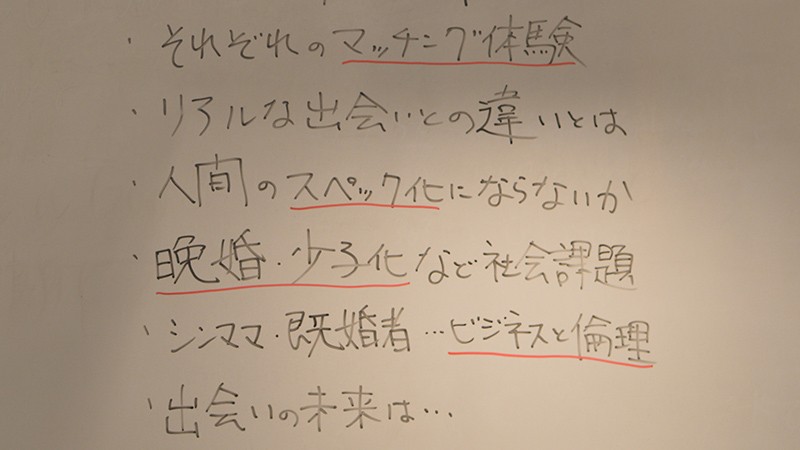 ・それぞれのマッチング体験
・リアルな出会いとの違いとは
・人間のスペック化にならないか
・晩婚・少子化など社会課題
・シンママ・既婚者…ビジネスと倫理
・出会いの未来は…